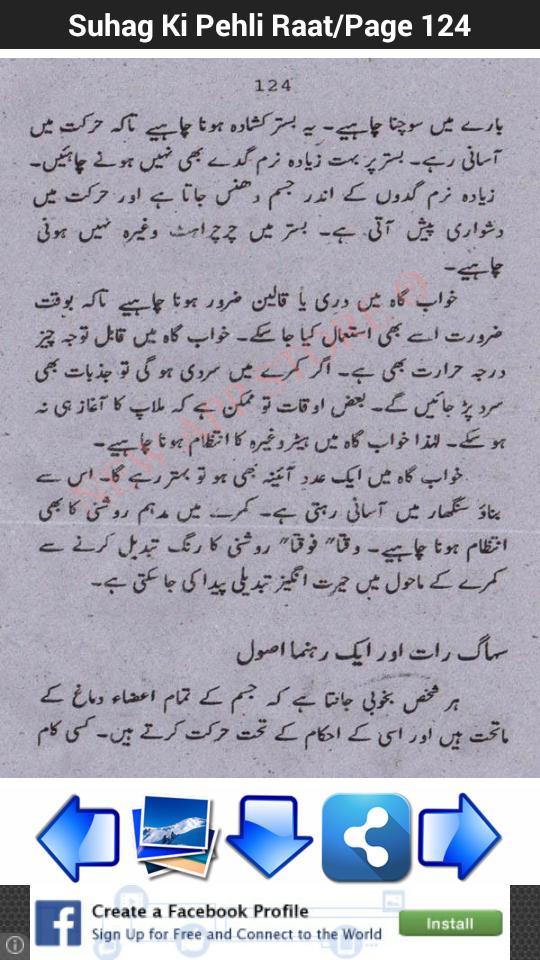 Suhag Ki Pehli Raat/Page 124
124
بارے میں سوچنا چاہیے۔ یہ بستر کشادہ ہونا چاہیے تاکہ حرکت میں
آسانی رہے۔ بستر پر بہت زیادہ نرم گدے بھی نہیں ہونے چاہئیں۔
زیادہ نرم گدوں کے اندر جسم دھنس جاتا ہے اور حرکت میں
دشواری پیش آتی ہے۔ بستر میں چرچراہٹ وغیرہ نہیں ہونی
چاہیے۔
خواب گاہ میں دری یا قالین ضرور ہونا چاہیے تاکہ بوقت
ضرورت اسے بھی استعمال کیا جا سکے۔ خواب گاہ میں قابل توجہ چیز
درجہ حرارت بھی ہے۔ اگر کمرے میں سردی ہو گی تو جذبات بھی
سرد پڑ جائیں گے۔ بعض اوقات تو ممکن ہے کہ ملاپ کا آغاز ہی نہ
ہو سکے۔ لہٰذا خواب گاہ میں ہیٹر وغیرہ کا انتظام ہونا چاہیے۔
خواب گاہ میں ایک عدد آئینہ بھی ہو تو بہتر رہے گا۔ اس سے
بناؤ سنگھار میں آسانی رہتی ہے۔ کمرے میں مدہم روشنی کا بھی
انتظام ہونا چاہیے۔ وقتا" فوقتا" روشنی کا رنگ تبدیل کرنے سے
کمرے کے ماحول میں حیرت انگیز تبدیلی پیدا کی جا سکتی ہے۔
سہاگ رات اور ایک رہنما اصول
ہر شخص بخوبی جانتا ہے کہ جسم کے تمام اعضاء دماغ کے
ماتحت ہیں اور اسی کے احکام کے تحت حرکت کرتے ہیں۔ کسی کام
Create a Facebook Profile
Sign Up for Free and Connect to the World
Install